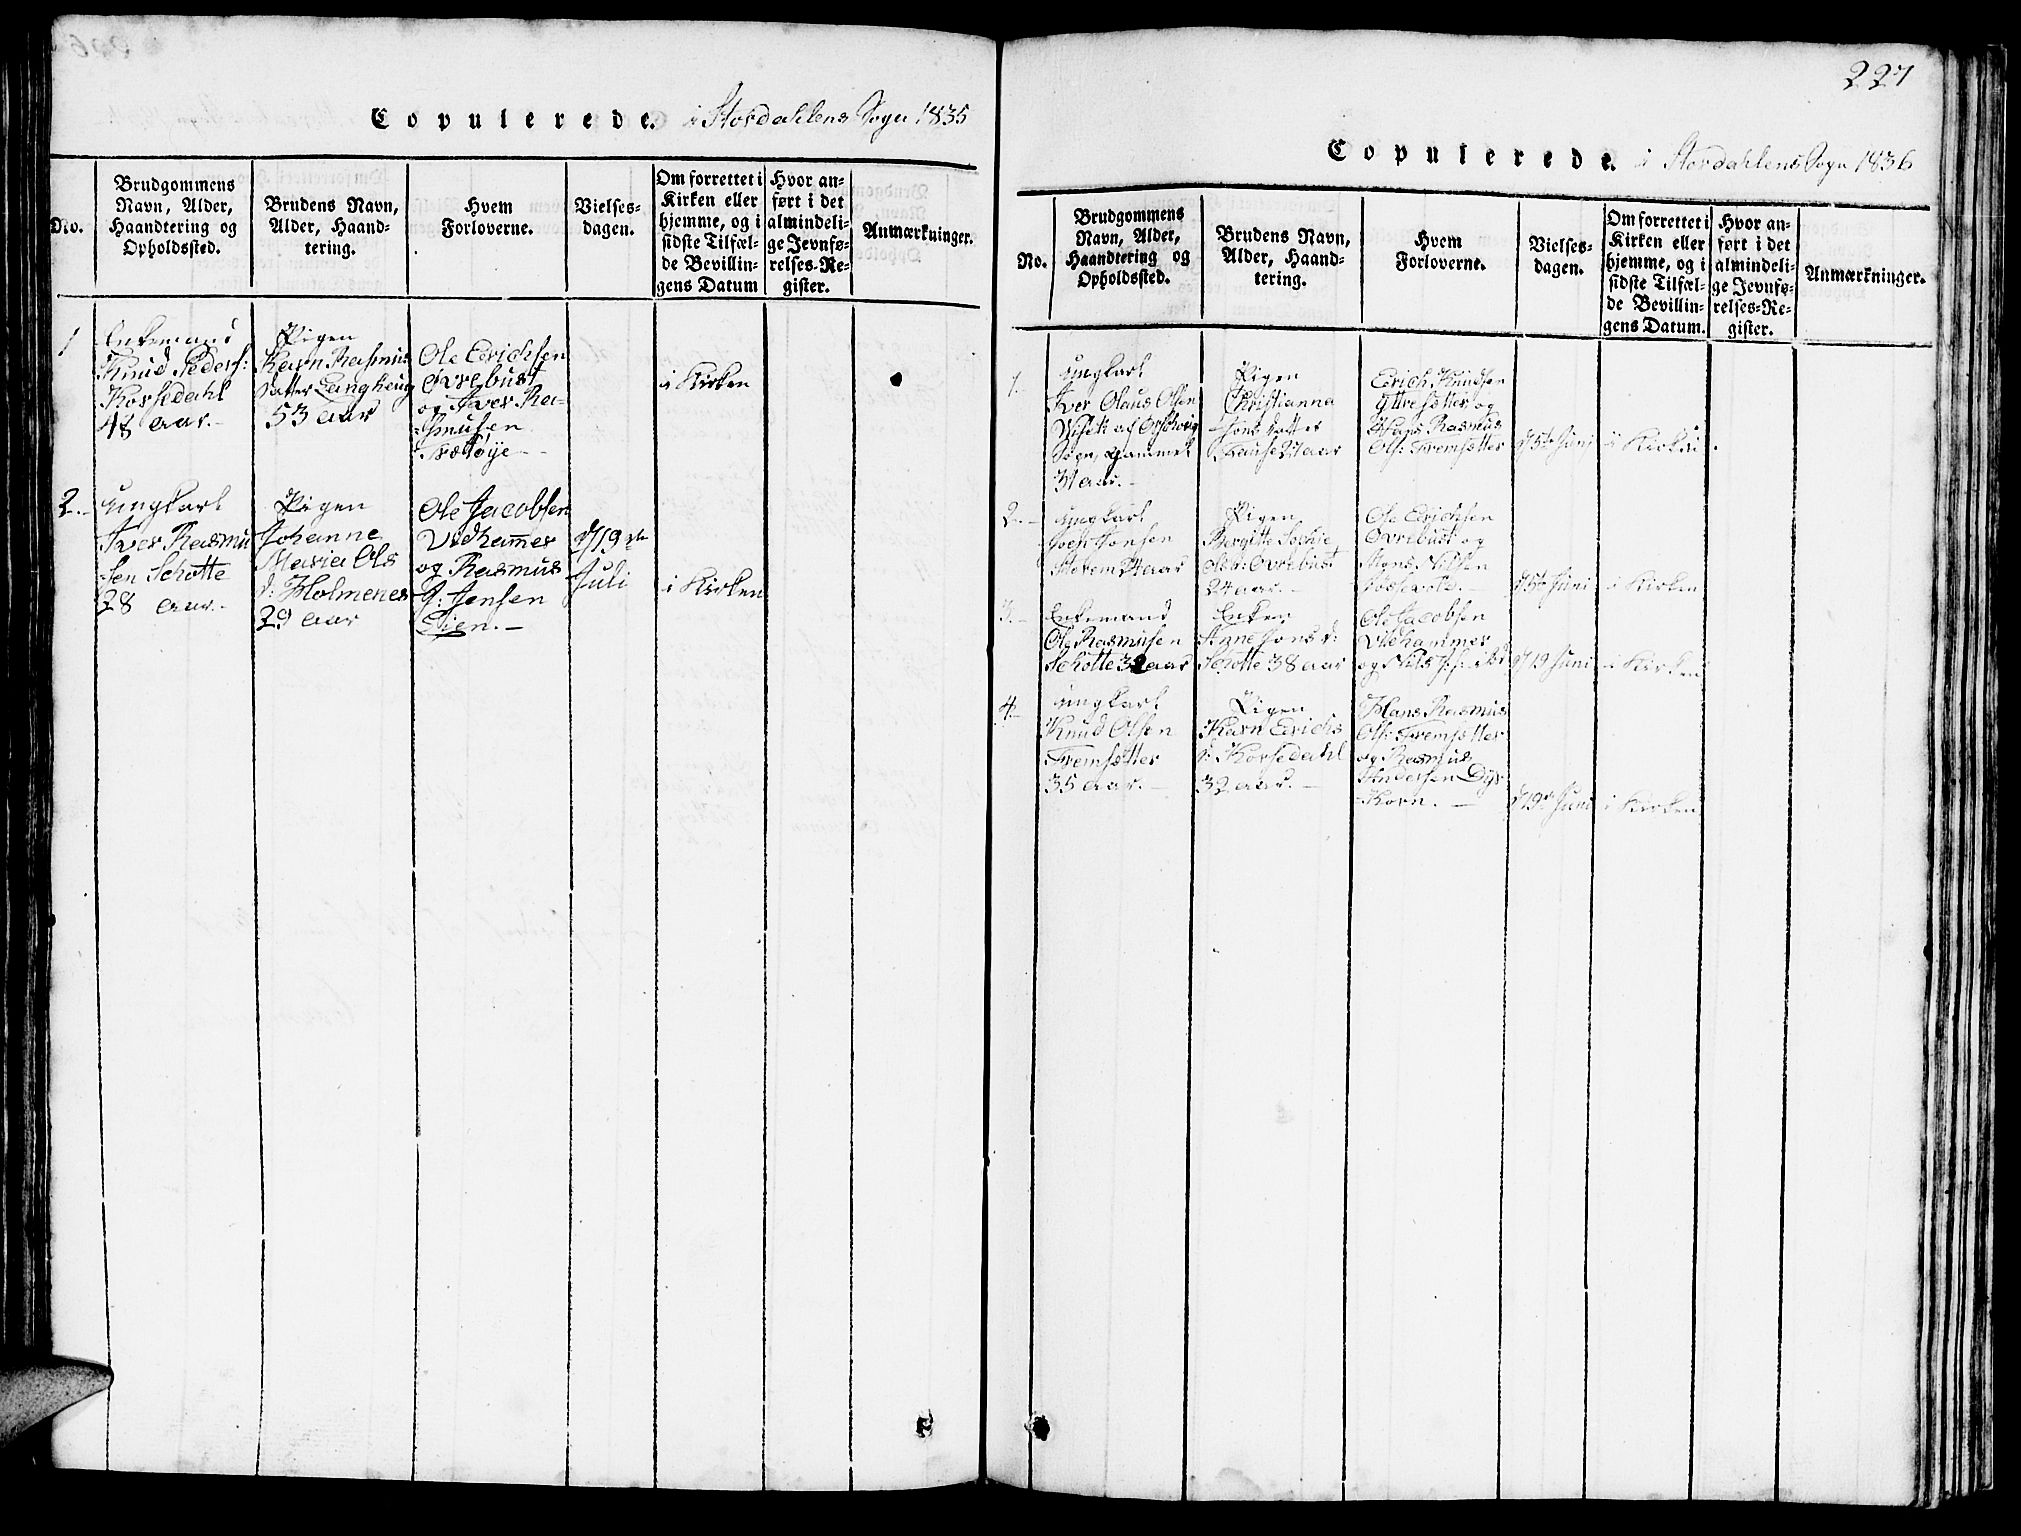 Copulerede. i Stordahlens Sogn 1835
No.
Brudgommens
Navn, Alder,
Haandtering og
Opholdssted.
Brudens Navn,
Alder, Haand-
tering.
Hvem
Forloverne.
Vielses-
dagen.
Om forrettet i
Kirken eller
hjemme, og i
sidste Tilfæl-
de Bevillin-
gens Datum
Hvor an-
ført i det
almindeli-
ge Jevnfø-
relses-Re-
gister.
Anmærkninger.
1
Enkemand
Knud Peders:
Korsedahl
48 aar.
Pigen
Karn Rasmus
datter Langheug
53 aar
Ole Erichsen
Øvrebust
og Iver Ra-
smusen
i Kirken
2.
ungkarl
Iver Rasmu
sen Schotte
28 aar.
Pigen
Johanne
Maria Ols
d: Holmenes
29 aar
Ole Jacobsen
Vidhammer
og Rasmus
J: Jensen
Dien.
d 19de
Juli
i Kirken
227
Copulerede. i Stordahlens Sogn 1836
No.
Brudgommens
Navn, Alder,
Haandtering og
Opholdssted.
Brudens Navn,
Alder, Haand-
tering.
Hvem
Forloverne.
Vielses-
dagen.
Om forrettet i
Kirken eller
hjemme, og i
sidste Tilfæl-
de Bevillin-
gens Datum.
Hvor an-
ført i det
almindeli-
ge Jevnfø-
relses-Re-
gister.
Anmærkninger.
1.
ungkarl
Iver Olaus Olsen
af
Sogn, gammel
31 aar.
Pigen
Christianna
Jons datter
27 aar
Erich Knudsen
Yttresætter og
Hans Rasmus
Ols: Fremsætter
d 5te Juni
i Kirken
2.
ungkarl
Jonsen
aar
Pigen
Bergitte Sophie
Ols d: Øvrebust
24 aar.
Ole Erichsen
Øvrebust og
Nilsen
d 5te Juni
i Kirken
3.
Enkemand
Ole Rasmusen
Schotte 32 aar
Enken
Anne Jons d:
Schotte 38 aar
Ole Jacobsen
Videhammer
og Nils
d 19 Juni
i Kirken
4.
ungkarl
Knud Olsen
Fremsætter
35 aar.
Pigen
Karn Erichs
d: Korsedahl
32 aar.
Hans Rasmus
Ols: Fremsætter
og Rasmus
Andersen Dyr
Korn.
d 19de Juni
i Kirken